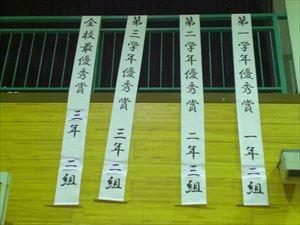 第一学年優秀賞 一年二組
第二学年優秀賞 二年三組
第三学年優秀賞 三年二組
全校最優秀賞 三年二組